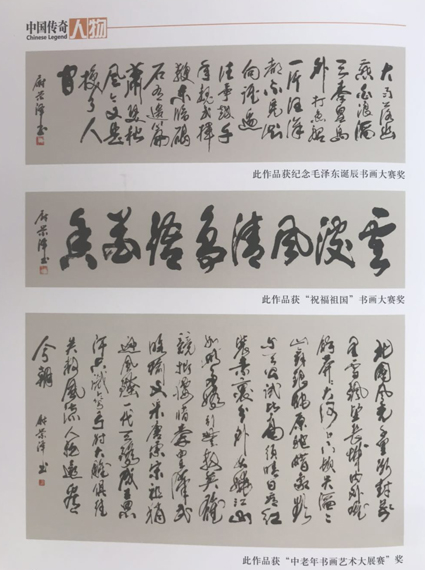 中国传奇 人物
Chinese Legend
大雨落幽
燕白浪滔
天秦皇岛
外打鱼船
一片汪洋
都不见知
向谁边
往事越千
年魏武挥
鞭东临碣
石有遗篇
萧瑟秋
风今又是
换了人
间
此作品获纪念毛泽东诞辰书画大赛奖
云淡风清鸟语花香
此作品获“祝福祖国”书画大赛奖
北国风光千里冰封万
里雪飘望长城内外惟
馀莽莽大河上下顿失滔滔
山舞银蛇原驰蜡象欲
与天公试比高须晴日看红
装素裹分外妖娆江山
如此多娇引无数英雄
竞折腰惜秦皇汉武
略输文采唐宗宋祖稍
逊风骚一代天骄成吉思
汗只识弯弓射大雕俱往
矣数风流人物还看
今朝
此作品获“中老年书画艺术大展赛”奖